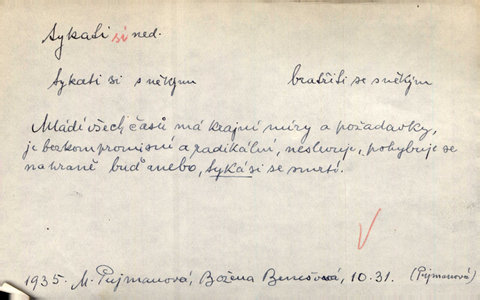 tykati si ned.
tykati si s někým bratřiti se s někým
Mládí všech časů má krajní míry a požadavky,
je bezkompromisní a radikální, neslevuje, pohybuje se
na hraně buď anebo, tyká si se smrtí.
1935. M. Pujmanová, Božena Benešová, 10.31. (Pujmanová)